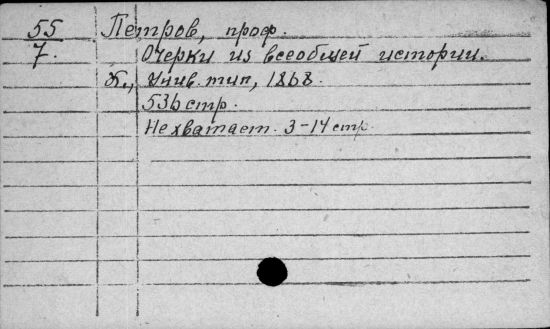 55 Петров, проф.
7. Очерки из всеобщей истории.
Х., Унив. тип, 1868.
536 стр.
Не хватает 3-14 стр.